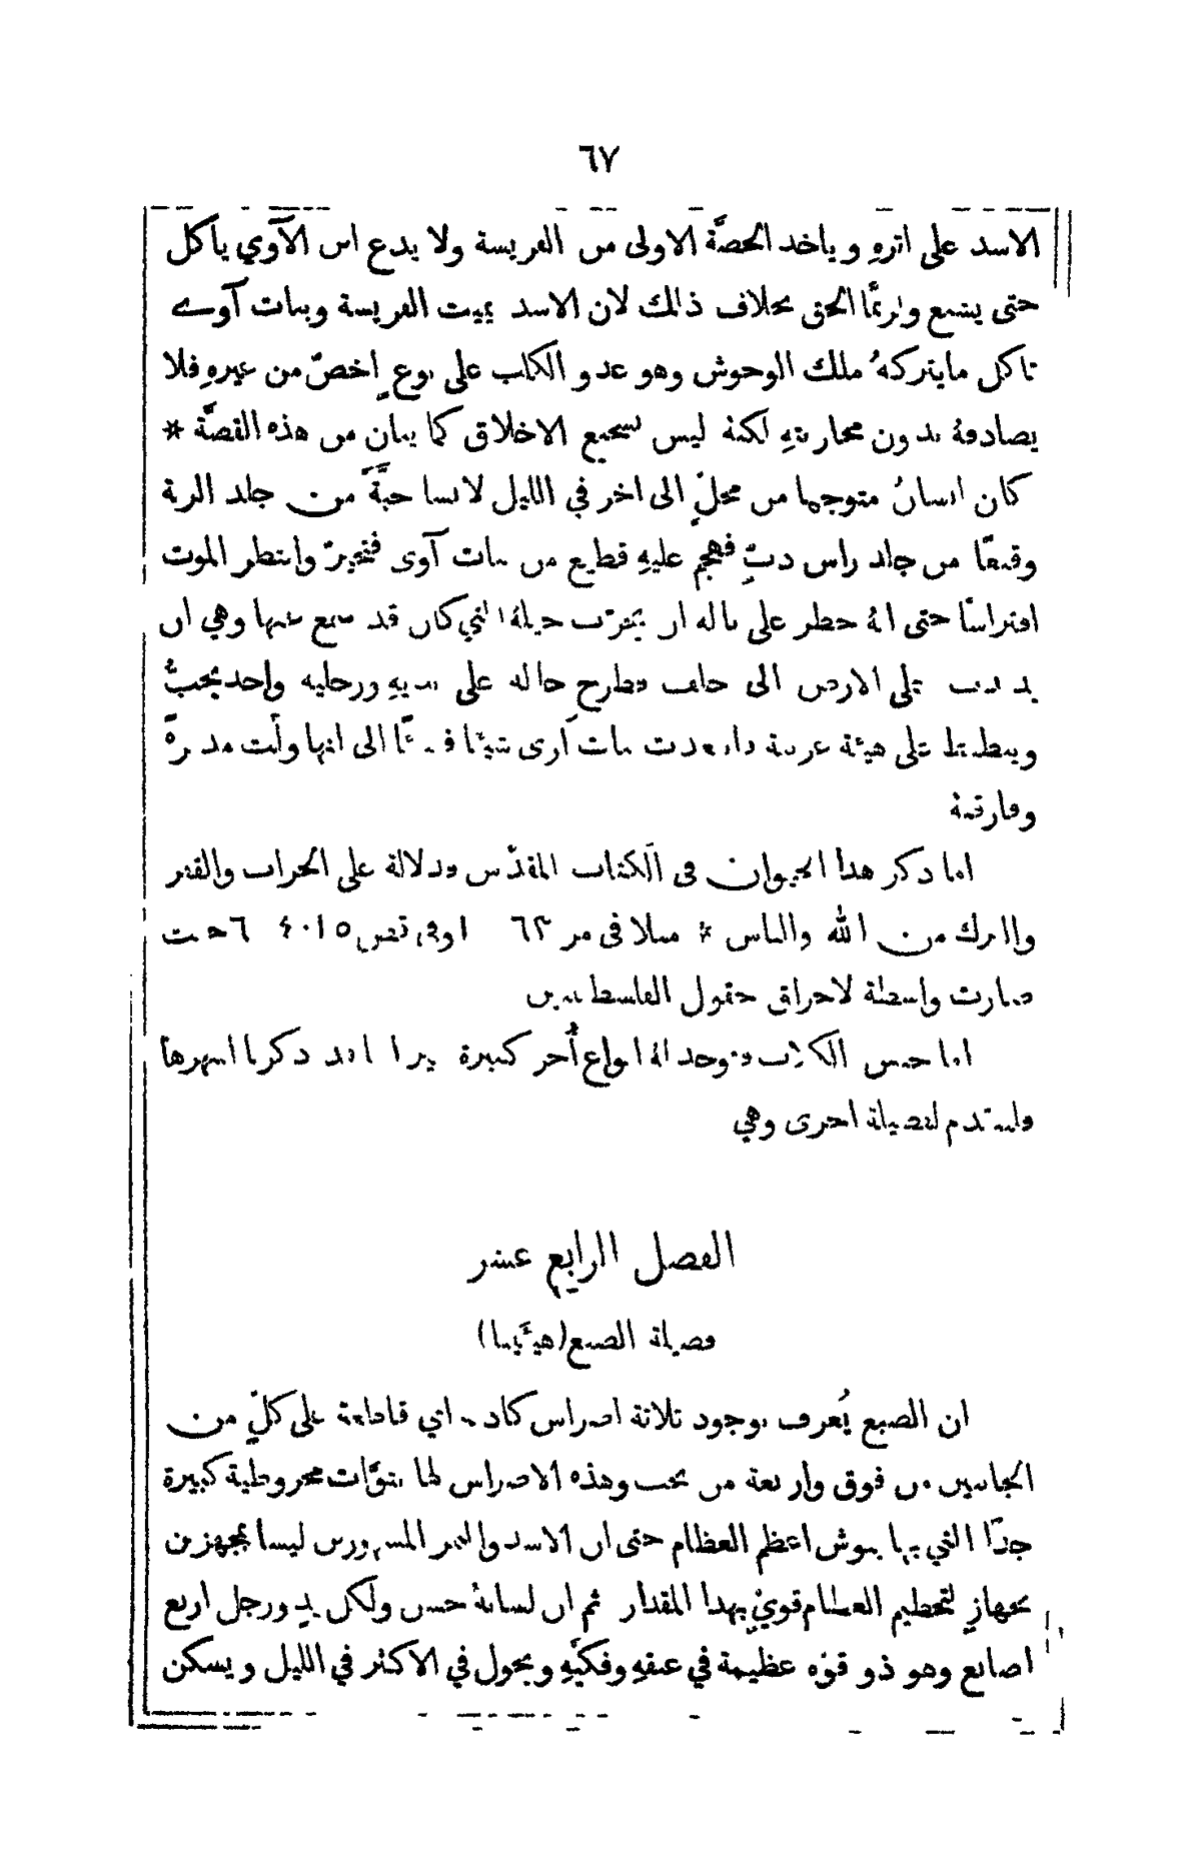 ٦٧
الاسد على اثرهِ وياخذ الحصَّة الاولى من الفريسة ولا يدع ابن الآوي ياكل
حتى يشبع ولربمَّا الحق بخلاف ذالك لان الاسد يميت الفريسة وبنات آوے
تاكل مايتركهُ ملك الوحوش وهو عدو الكلاب على نوعٍ اخصّ من غيرهِ فلا
يصادفهُ بدون محاربتهِ لكنهُ ليس شجيع الاخلاق كما يبان من هذه القصَّة *
كان انسانُ متوجها من محلٍّ الى اخر في الليل لابسا جبَّةً من جلد الدبة
وقبعًا من جلد راس دبٍّ فهجم عليهِ قطيع من بنات آوى فتحيرّ وانتظر الموت
افتراسًا حتى انهُ خطر على باله ان يجرّب حيلةً التي كان قد سمع عنها وهي ان
على الارض الى خلف فطرح حاله على يديهِ ورجليه واحد يجبُّ
على هيئة غريبة بنات آوى شيئا الى انها ولَّت مدبرةً
وفارقتهُ
اما ذكر هذا الحيوان في الكتاب المقدّس فدلالة على الخراب والقفر
والترك من الله والناس * مثلا في مز ٦٣ او في قض ١٥ ٤٠ ٦ حيث
صارت واسطة لاحراق حقول الفلسطينيين
اما جنس الكلاب فتوجد لهُ انواع أُخر كثيرة ذكرنا اشهرها
ولنتقدم لفصيلة اخرى وهي
الفصل الرابع عشر
فصيلة الضبع (هيَئينا)
ان الضبع يُعرف بوجود ثلاثة اضراس اي قاطعة على كلٍّ من
الجانبين من فوق واربعة من تحت وهذه الاضراس لها نتوَّات مخروطية كبيرة
جدًا التي بها يهوش اعظم العظام حتى ان الاسد والنمر ليسا بمجهزين
بجهازٍ لتحطيم العظام قويٍّ بهذا المقدار ثم ان لسانهُ خشن ولكل يدٍ ورجل اربع
اصابع وهو ذو قوَّه عظيمة في عنقهِ وفكَّيهِ ويجول في الاكثر في الليل ويسكن